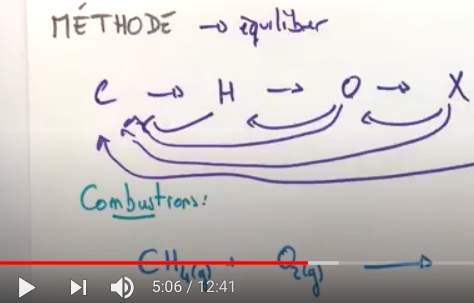 MÉTHODE → équiliber
C → H → O → X
Combustions:
CH4(g) + O2(g) →
5:06 / 12:41